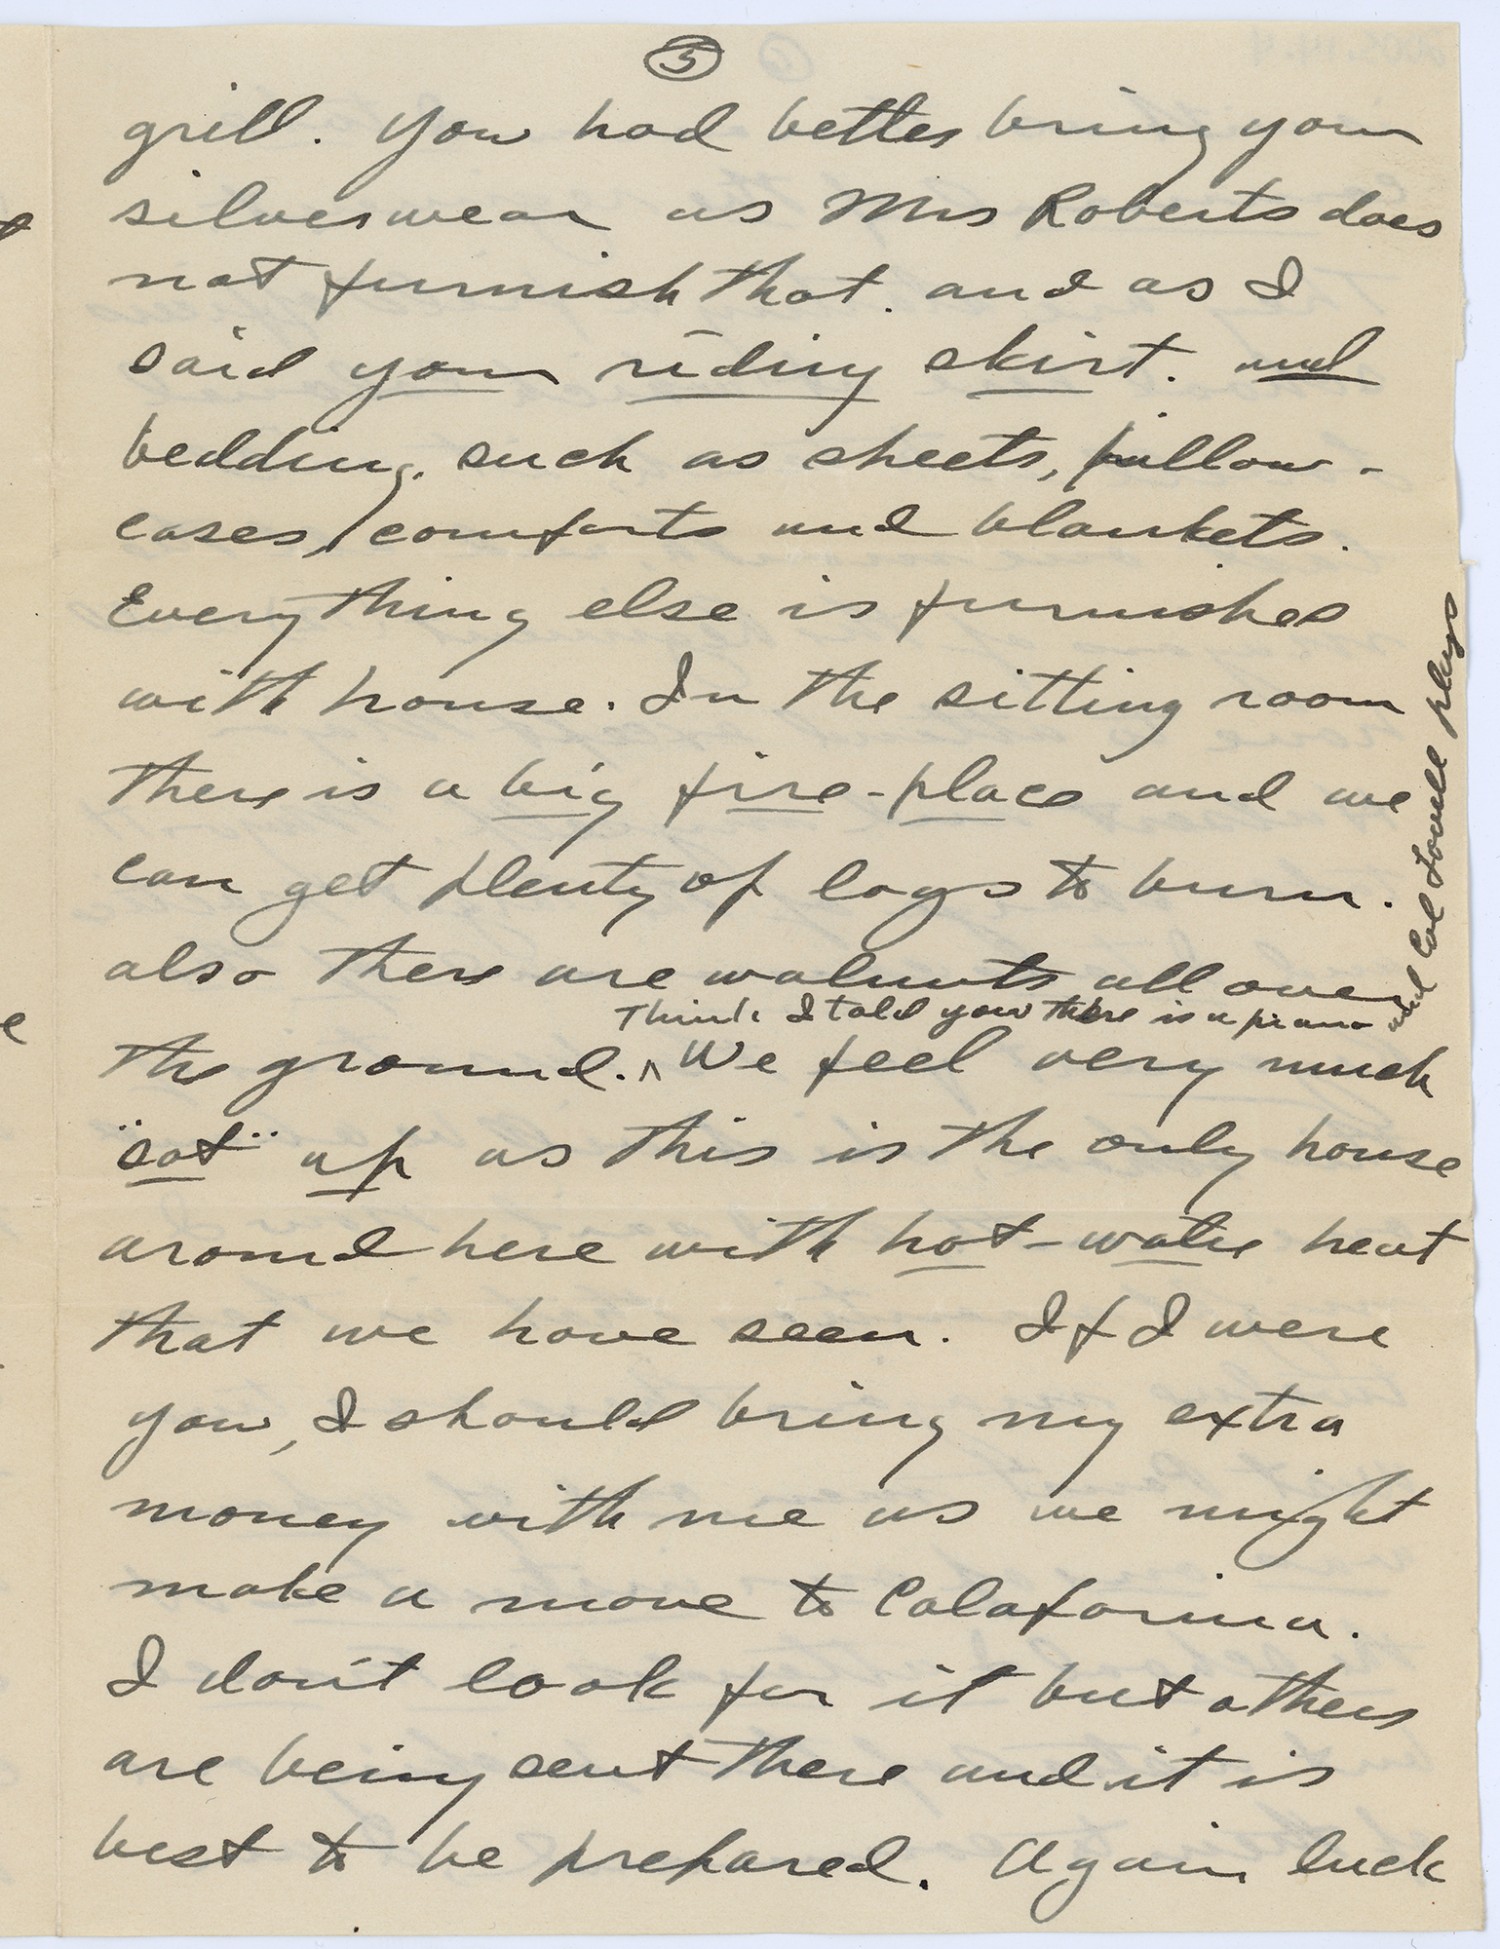 5
grill. You had better bring your
silverwear as Mrs Roberts does
not furnish that. and as I
said your riding skirt. and
bedding, such as sheets, pillow-
cases, comforts and blankets.
Everything else is furnished
with house. In the sitting room
there is a big fire-place and we
can get plenty of logs to burn.
also there are walnuts all over
Think I told you there is a piano and Col Lowell plays
the ground. ^ We feel very much
"sot" up as this is the only house
around here with hot-water heat
that we have seen. If I were
you, I should bring my extra
money with me as we might
make a move to Calafornia.
I don't look for it but others
are being sent there and it is
best to be prepared. Again luck